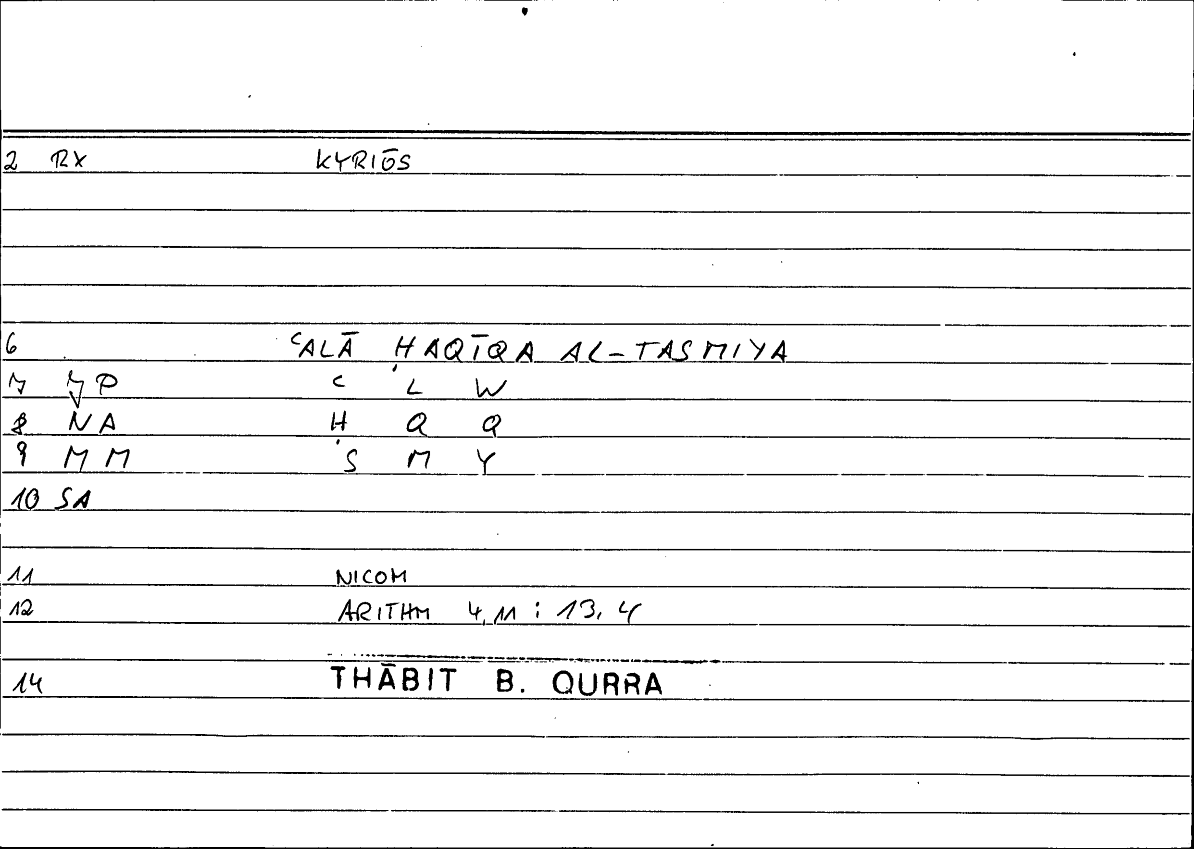 2 RX KYRIŌS
6 ʿALĀ ḤAQĪQA AL-TASMIYA
7 JP ʿ L W
8 NA Ḥ Q Q
9 MM S M Y
10 SA
11 NICOM
12 ARITHM 4,11 : 13,4
14 THĀBIT B. QURRA